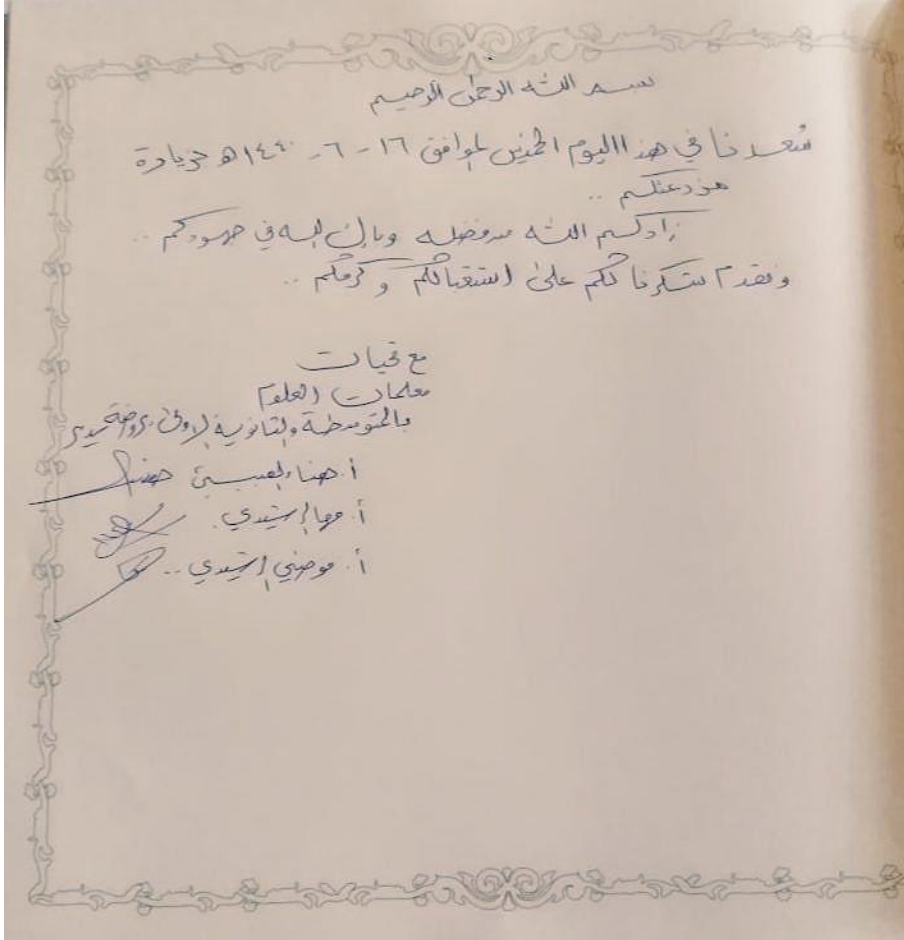 بسم الله الرحمن الرحيم
سُعدنا في هذا اليوم الخميس الموافق ١٦ - ٦ - ١٤٤٠ هـ بزيارة
زادكم الله من فضله وبارك الله في جهودكم ..
ونقدم شكرنا لكم على استقبالكم وكرمكم ..
مع تحيات
معلمات العلوم
بالمتوسطة والثانوية الأولى بروضة سدير
أ. هناء
أ. مها الرشيدي.
أ. موضي الرشيدي ..